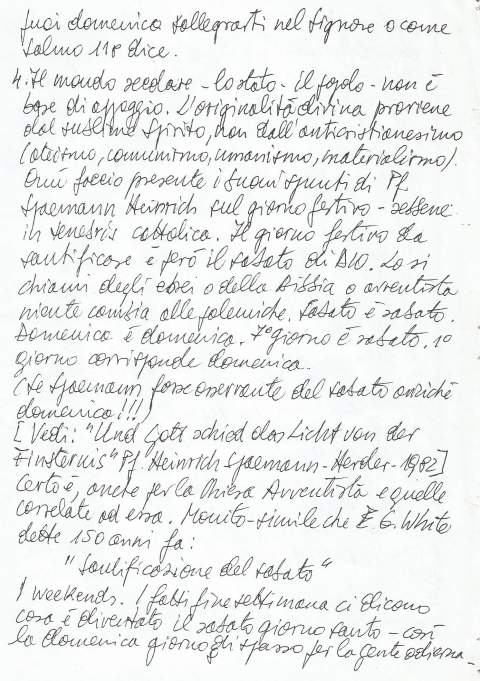 fuai domenica rallegrarti nel Signore o come
salmo 118 dice.
4. Il mondo secolare - lo stato - il popolo - non è
base di appoggio. L'originalità divina proviene
dal sublime Spirito, non dall'anticristianesimo
(ateismo, comunismo, umanismo, materialismo).
Qui faccio presente i buoni spunti di Pf
Spaemann Heinrich sul giorno festivo - sebbene
in tenebris cattolica. Il giorno festivo da
santificare è però il sabato di DIO. Lo si
chiami degli ebrei o della Bibbia o avventista
niente cambia alle polemiche. Sabato è sabato.
Domenica è domenica. 7° giorno è sabato. 1°
giorno corrisponde domenica.
(Se Spaemann fosse osservante del sabato anziché
domenica!!!)
[Vedi: "Und Gott schied das Licht von der
Finsternis" Pf. Heinrich Spaemann - Herder - 1982]
Certo è, anche per la Chiesa Avventista e quelle
correlate ad essa. Monito - simile che E. G. White
dette 150 anni fa:
"Santificazione del sabato"
I weekends. I falsi fine settimana ci dicono
cosa è diventato il sabato giorno santo - così
la domenica giorno di spasso per la gente odierna -